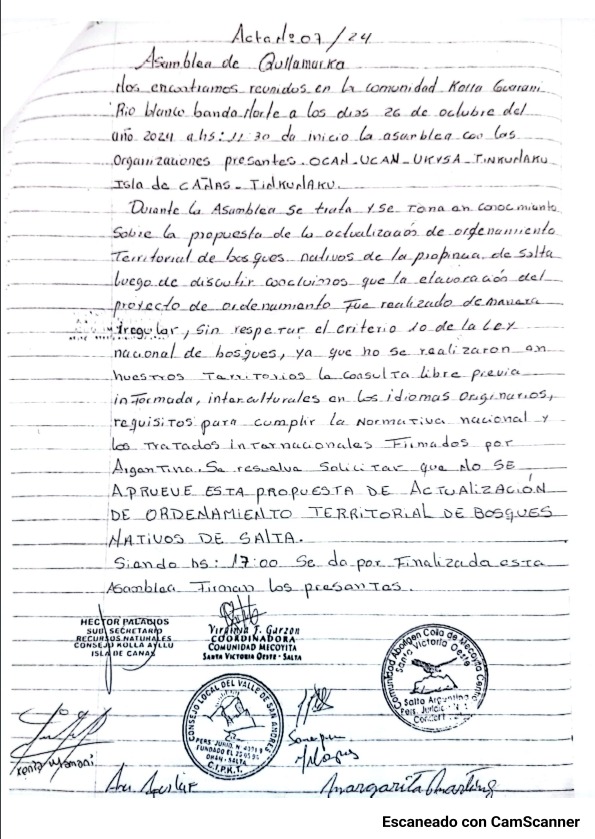 Acta Nº 07/24
Asamblea de Qullamarka
Nos encontramos reunidos en la comunidad Kolla Guarani
Rio blanco banda Norte a los dias 26 de octubre del
año 2024 a hs: 11:30 da inicio la asamblea con las
Organizaciones presentes. OCAN_UCAN_UKVSA_TINKUNAKU
Isla de CAÑAS_TINKUNAKU.
Durante la Asamblea se trata y se toma en conocimiento
Sobre la propuesta de la actualización de ordenamiento
Territorial de bosques nativos de la propincia de Salta
luego de discutir concluimos que la elavoración del
proyecto de ordenamiento Fue realizado de manera
irregular, sin respetar el criterio 10 de la Ley
nacional de bosques, ya que no se realizaron en
nuestros Territorios la consulta libre previa
informada, interculturales en los idiomas originarios,
requisitos para cumplir la Normativa nacional y
los tratados internacionales Firmados por
Argentina. Se resuelve Solicitar que No SE
APRUEVE ESTA PROPUESTA DE ACTUALIZACIÓN
DE ORDENAMIENTO TERRITORIAL DE BOSQUES
NATIVOS DE SALTA.
Siendo hs: 17:00 Se da por Finalizada esta
Asamblea Firman los presentes.
HECTOR PALACIOS
SUB SECRETARIO
RECURSOS NATURALES
CONSEJO KOLLA AYLLU
ISLA DE CAÑAS
Virginia F. Garzon
COORDINADORA
COMUNIDAD MECOYITA
SANTA VICTORIA OESTE - SALTA
Comunidad Aborigen Colla de Mecoyita Centro
Santa Victoria Oeste
Salta Argentina
Pers. Juridica
CONSEJO LOCAL DEL VALLE DE SAN ANDRES
PERS. JURID. N
FUNDADO EL
ORAN - SALTA
C.I.P.K.T.
Mamani
Milagros
Aguilar
Margarita
Escaneado con CamScanner